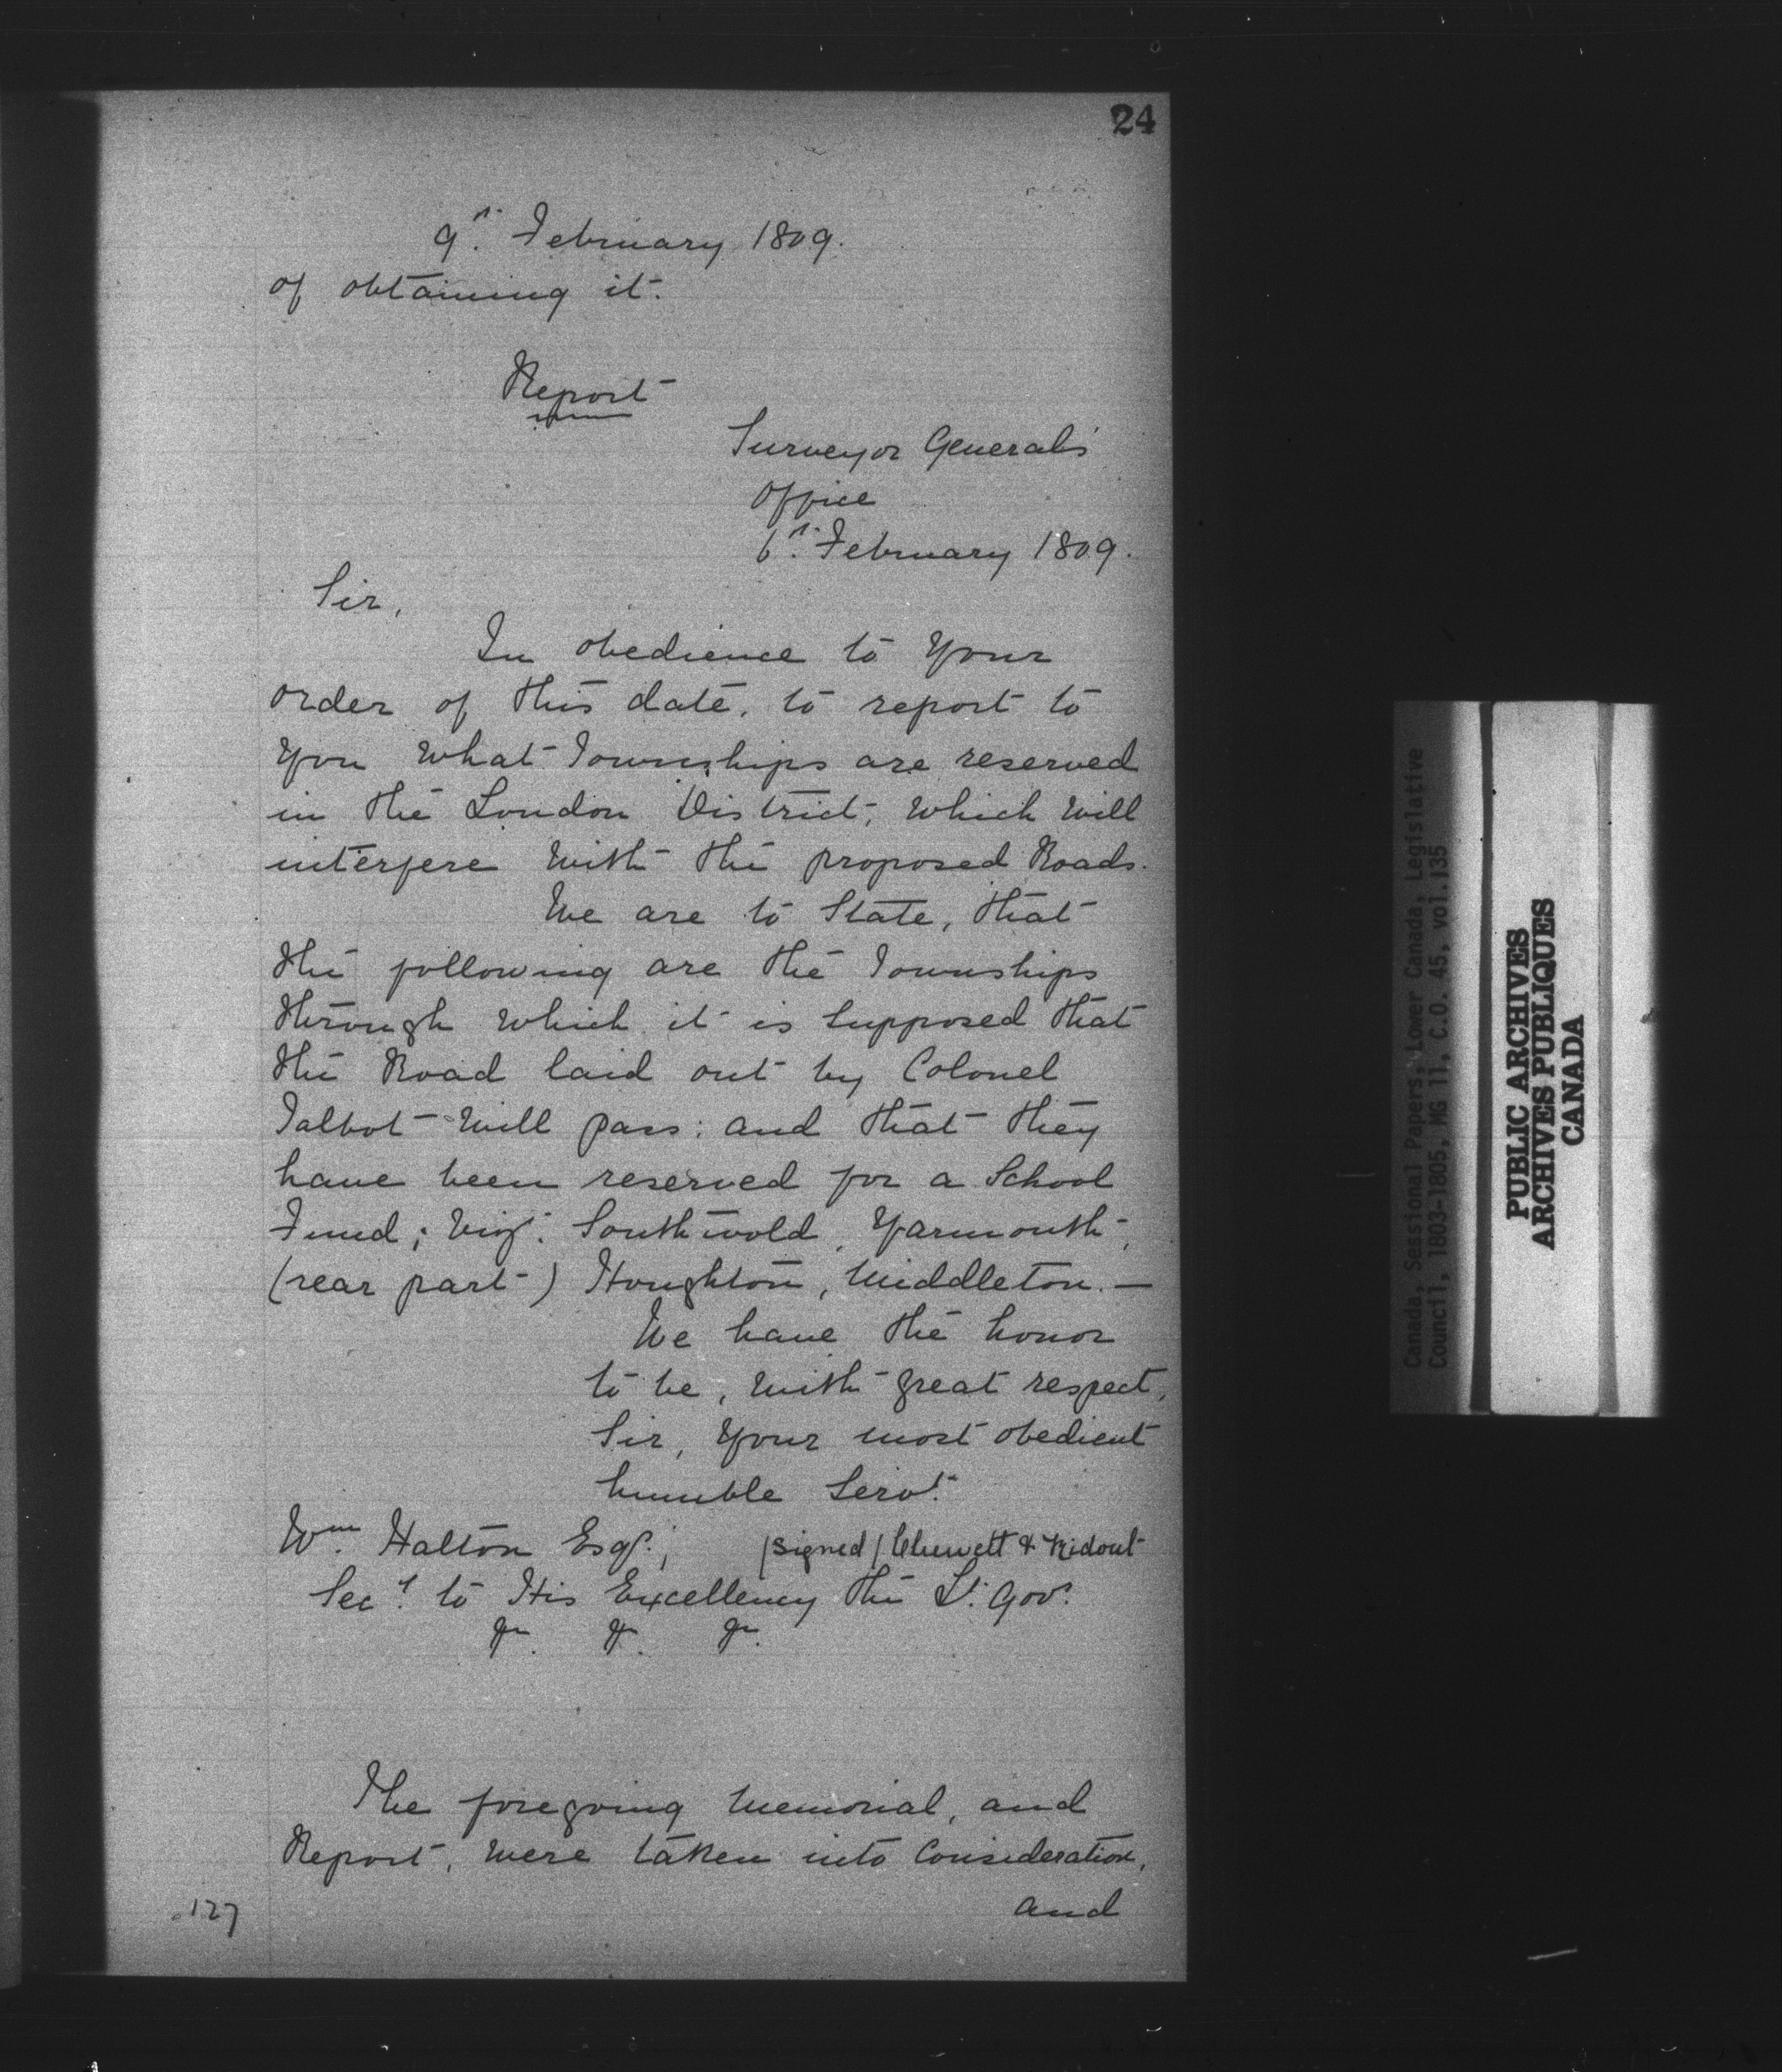 24
9th. February 1809.
of obtaining it.
Report
Surveyor General's
Office
6th. February 1809.
Sir,
In obedience to Your
order of this date, to report to
You what Townships are reserved
in the London District, which will
interfere with the proposed Roads.
We are to State, that
the following are the Townships
through which it is supposed that
the Road laid out by Colonel
Talbot will pass; and that they
have been reserved for a School
Fund; viz: Southwold, Yarmouth,
(rear part) Houghton, Middleton. —
We have the honor
to be, with great respect,
Sir, Your most obedient
humble Servt.
Wm. Halton Esqr.,
(signed) Chewett & Ridout
Secy. to His Excellency the Lt. Govr.
&c. &c. &c.
The foregoing Memorial, and
Report, were taken into Consideration,
and
127
Canada, Sessional Papers, Lower Canada, Legislative
Council, 1803-1805, MG 11, C.O. 45, vol.135
PUBLIC ARCHIVES
ARCHIVES PUBLIQUES
CANADA